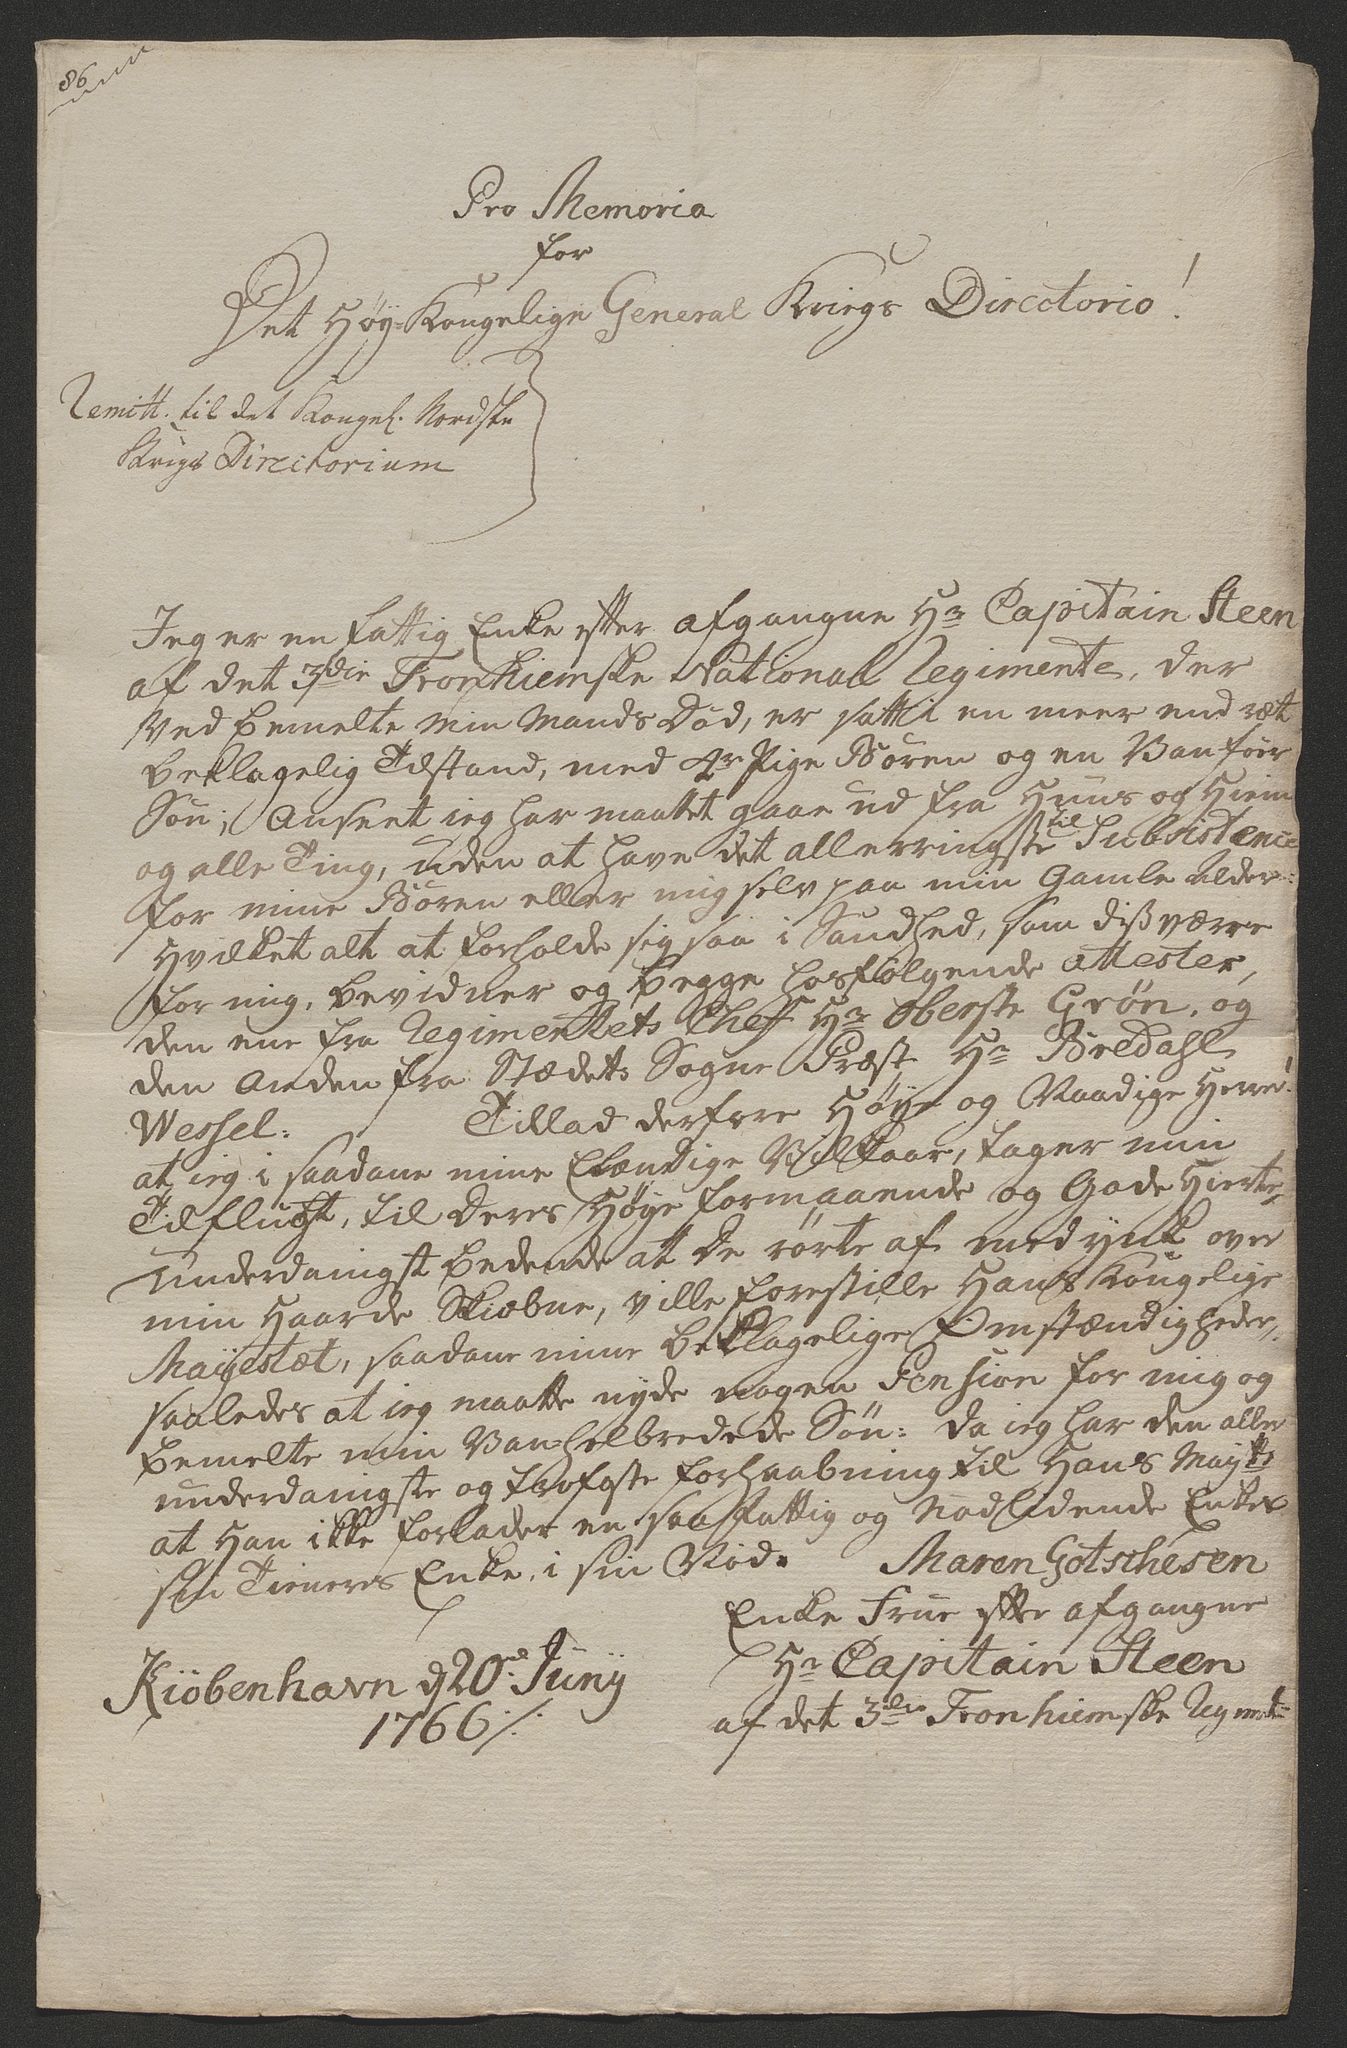 86
Pro Memoria
for
Det Høy-Kongelige General Kriegs Directorio!
Remitt. til det Kongel. Nordske
Krigs Directorium
Jeg er en fattig Enke efter afgangne Hr Capitain Steen
af det 3die Tronhiemske National Regimente, der
ved bemelte min Mands Død, er satt i en meer end ræt
beklagelig Tilstand, med 4re Pige Børen og en Vanfør
Søn; Anseet ieg har maattet gaae ud fra Huus og Hiem
og alle Ting, uden at have det allerringste til Subsistence
for mine Børen eller mig selv paa min Gamle Alder:
Hvilket alt at forholde sig saa i Sandhed, som dißværre
for mig, bevidner og begge hosfølgende attester,
den ene fra Regimentets Cheff Hr Oberste Grön, og
den Anden fra Stædets Sogne Præst Hr Bredahl
Wessel: Tillad derfore Høye og Naadige Herrer!
at ieg i saadane mine Elændige Vilkaar, tager min
Tilflucht, til Deres Høye formaaende og Gode Hierter,
Underdanigst bedende att De rørte af medynk over
min Haarde Skiæbne, ville forestille Hans Kongelige
Mayestæt, saadane mine beklagelige Omstændigheder,
saaledes at ieg maatte nyde nogen Pension for mig og
bemelte min Vanhelbredede Søn: da ieg har den aller
underdanigste og trofaste forhaabning til Hans Maytt
at Han ikke forlader en saa fattig og Nødlidende Enke
sin Tieneres Enke, i sin Nød. Maren Gotschesen
Enke Frue efter afgangne
Hr Capitain Steen
af det 3die Tronhiemske Regmt
Kiöbenhavn d 20de Junÿ
1766 ./.